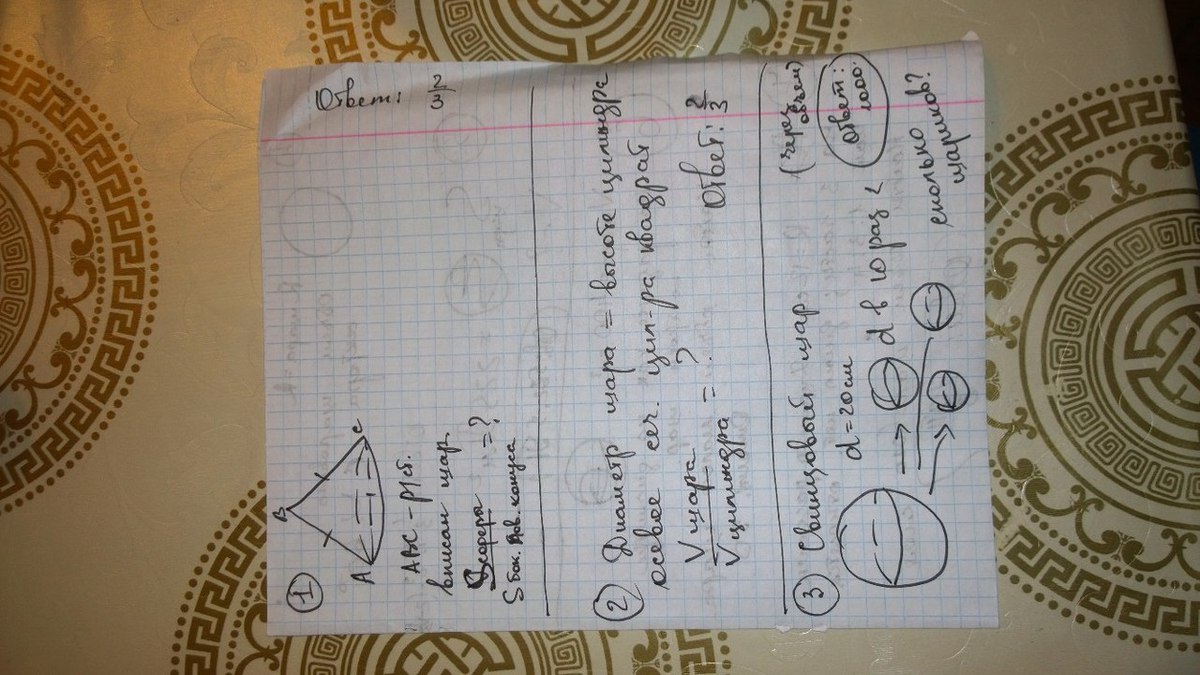 1
B
A
C
ABC - р/ст.
вписан шар
Sсферы
Sбок. пов. конуса = ?
Ответ:
2/3
2 Диаметр шара = высоте цилиндра
осевое сеч. цил-ра квадрат
Vшара
Vцилиндра = ?
Ответ: 2/3
3 Свинцовый шар. (через объем)
d=20см
d в 10 раз <
Ответ:
1000.
сколько
шариков?